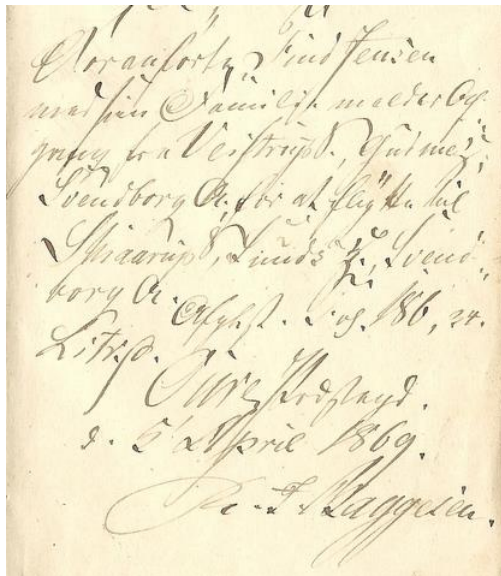 Foranførte Find Jensen
med sin Familie melder Af-
gang fra Veistrup S., Gudme H.,
Svendborg A. for at flytte til
Skaarup S., Sunds H., Svend-
borg A.
Afg. L. og. 186, 24.
Oure Præstegd.
d. 5' April 1869.
Baggesen.